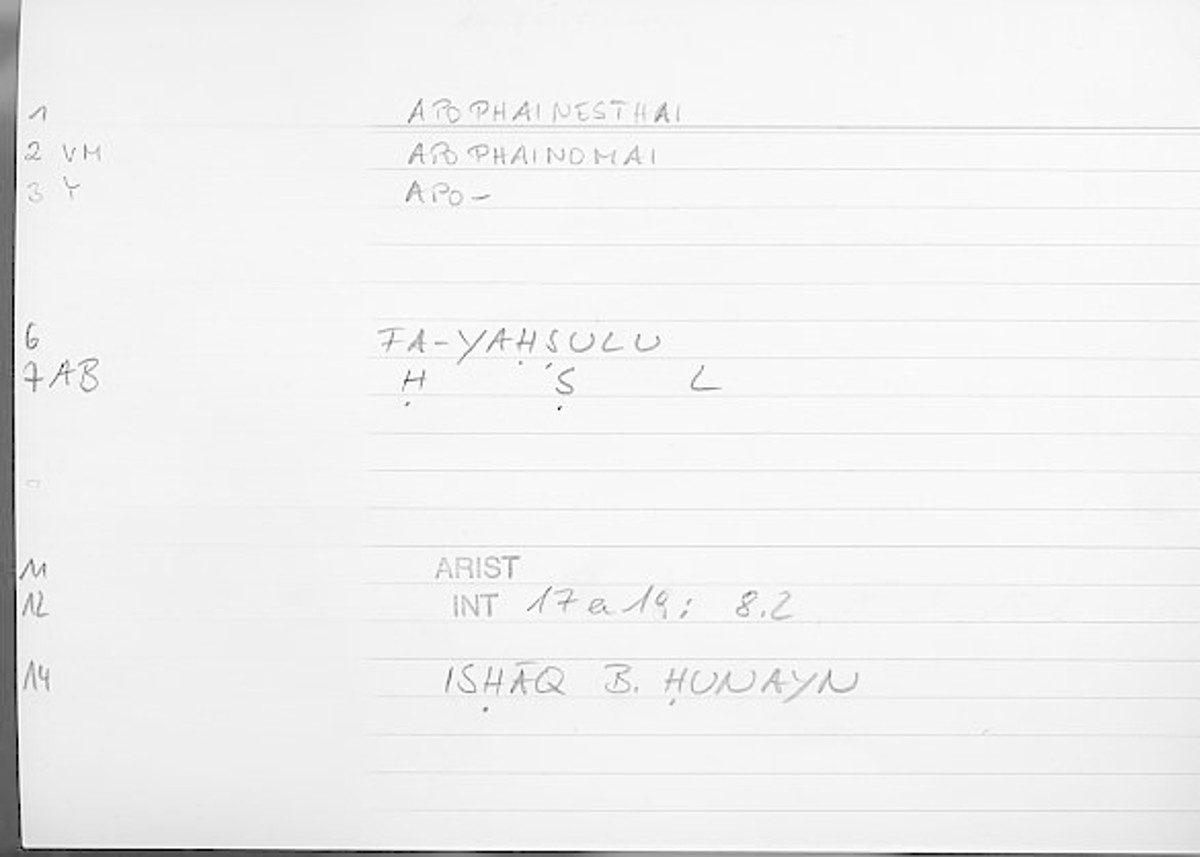 1 APOPHAINESTHAI
2 VM APOPHAINOMAI
3 Y APO-
6 FA-YAḤṢULU
7 AB Ḥ Ṣ L
11 ARIST
12 INT 17a19; 8.2
14 ISḤĀQ B. ḤUNAYN